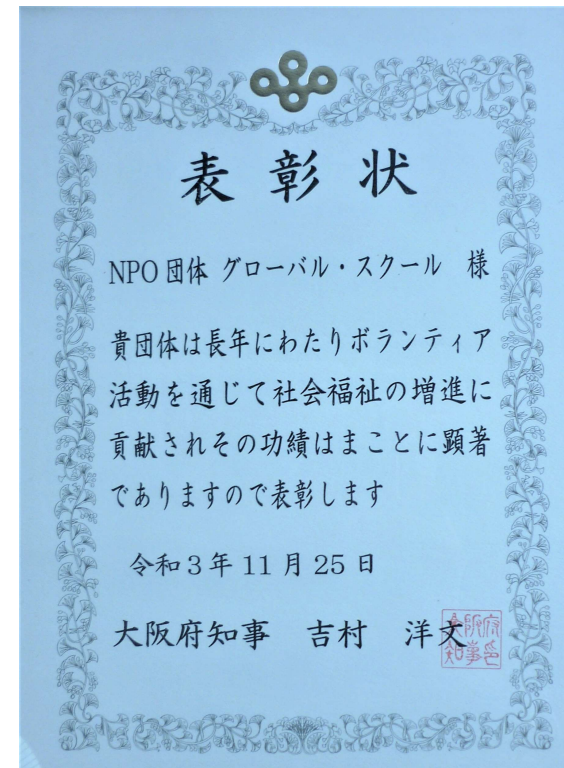 表彰状
NPO団体 グローバル・スクール 様
貴団体は長年にわたりボランティア
活動を通じて社会福祉の増進に
貢献されその功績はまことに顕著
でありますので表彰します
令和3年11月25日
大阪府知事 吉村 洋文
大阪府
知事印